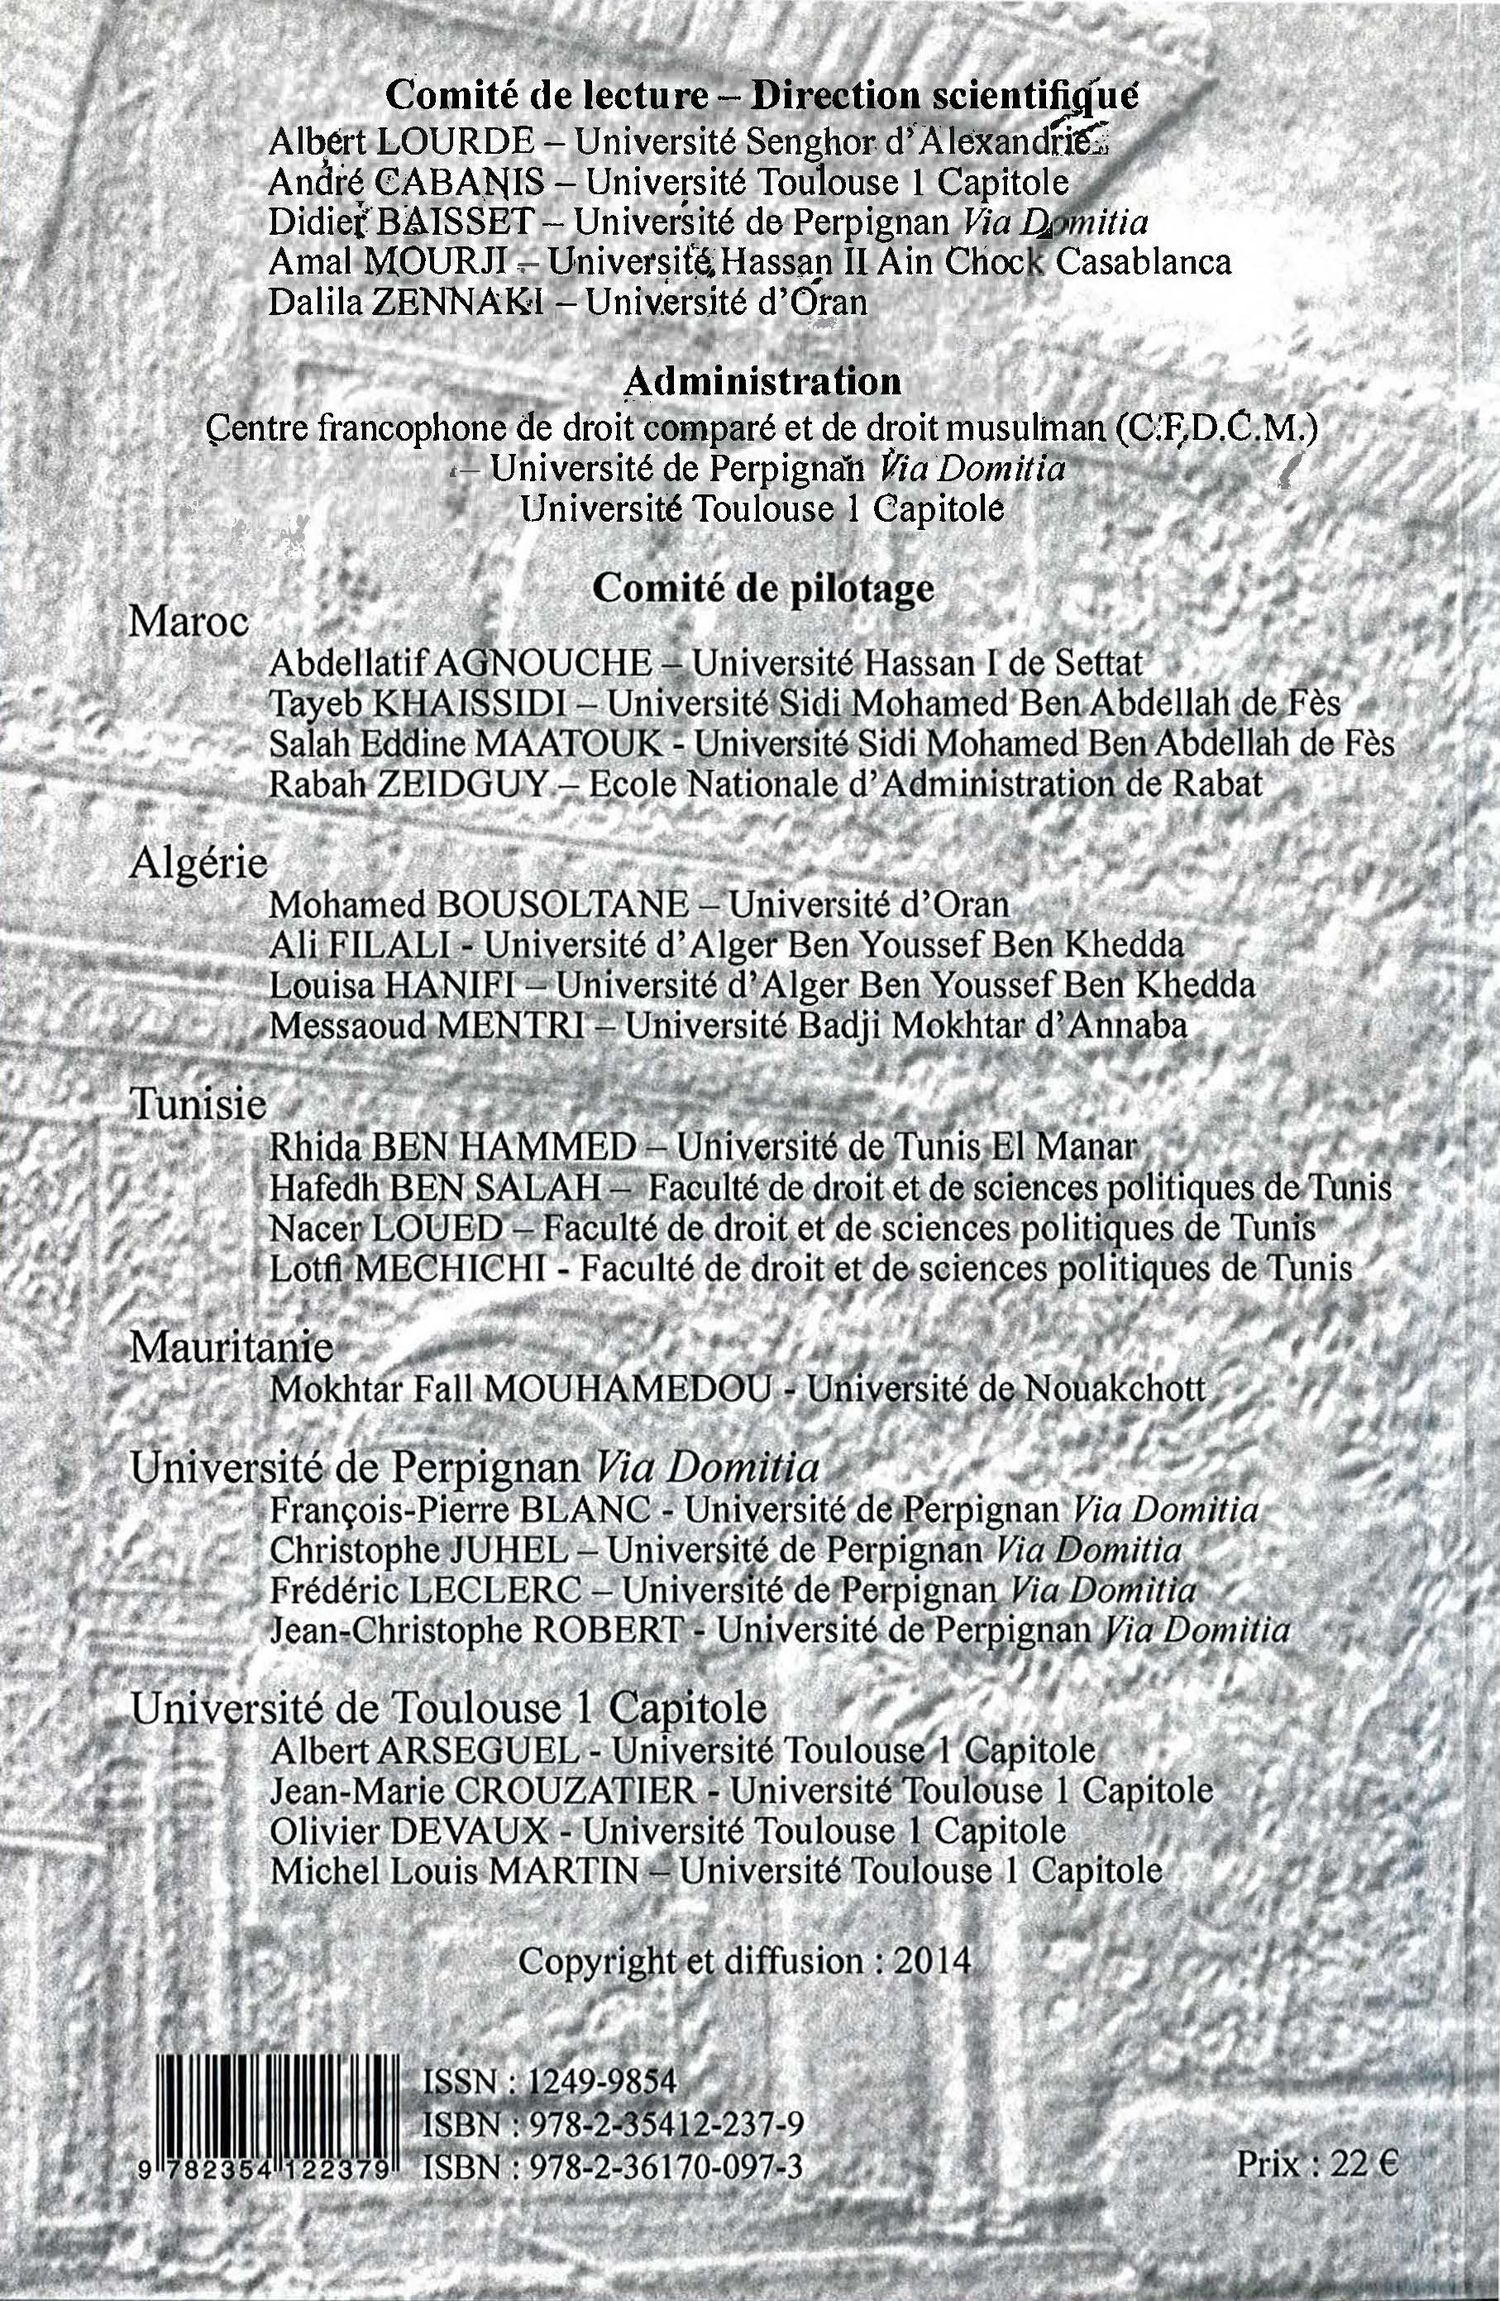 Comité de lecture – Direction scientifique
Albert LOURDE – Université Senghor d'Alexandrie
André CABANIS – Université Toulouse 1 Capitole
Didier BAISSET – Université de Perpignan Via Domitia
Amal MOURJI – Université Hassan II Ain Chock Casablanca
Dalila ZENNAKI – Université d'Oran
Administration
Centre francophone de droit comparé et de droit musulman (C.F.D.C.M.)
– Université de Perpignan Via Domitia
Université Toulouse 1 Capitole
Comité de pilotage
Maroc
Abdellatif AGNOUCHE – Université Hassan I de Settat
Tayeb KHAISSIDI – Université Sidi Mohamed Ben Abdellah de Fès
Salah Eddine MAATOUK - Université Sidi Mohamed Ben Abdellah de Fès
Rabah ZEIDGUY – Ecole Nationale d'Administration de Rabat
Algérie
Mohamed BOUSOLTANE – Université d'Oran
Ali FILALI - Université d'Alger Ben Youssef Ben Khedda
Louisa HANIFI – Université d'Alger Ben Youssef Ben Khedda
Messaoud MENTRI – Université Badji Mokhtar d'Annaba
Tunisie
Rhida BEN HAMMED – Université de Tunis El Manar
Hafedh BEN SALAH – Faculté de droit et de sciences politiques de Tunis
Nacer LOUED – Faculté de droit et de sciences politiques de Tunis
Lotfi MECHICHI - Faculté de droit et de sciences politiques de Tunis
Mauritanie
Mokhtar Fall MOUHAMEDOU - Université de Nouakchott
Université de Perpignan Via Domitia
François-Pierre BLANC - Université de Perpignan Via Domitia
Christophe JUHEL – Université de Perpignan Via Domitia
Frédéric LECLERC – Université de Perpignan Via Domitia
Jean-Christophe ROBERT - Université de Perpignan Via Domitia
Université de Toulouse 1 Capitole
Albert ARSEGUEL - Université Toulouse 1 Capitole
Jean-Marie CROUZATIER - Université Toulouse 1 Capitole
Olivier DEVAUX - Université Toulouse 1 Capitole
Michel Louis MARTIN – Université Toulouse 1 Capitole
Copyright et diffusion : 2014
ISSN : 1249-9854
ISBN : 978-2-35412-237-9
9 782354 122379 ISBN : 978-2-36170-097-3
Prix : 22 €